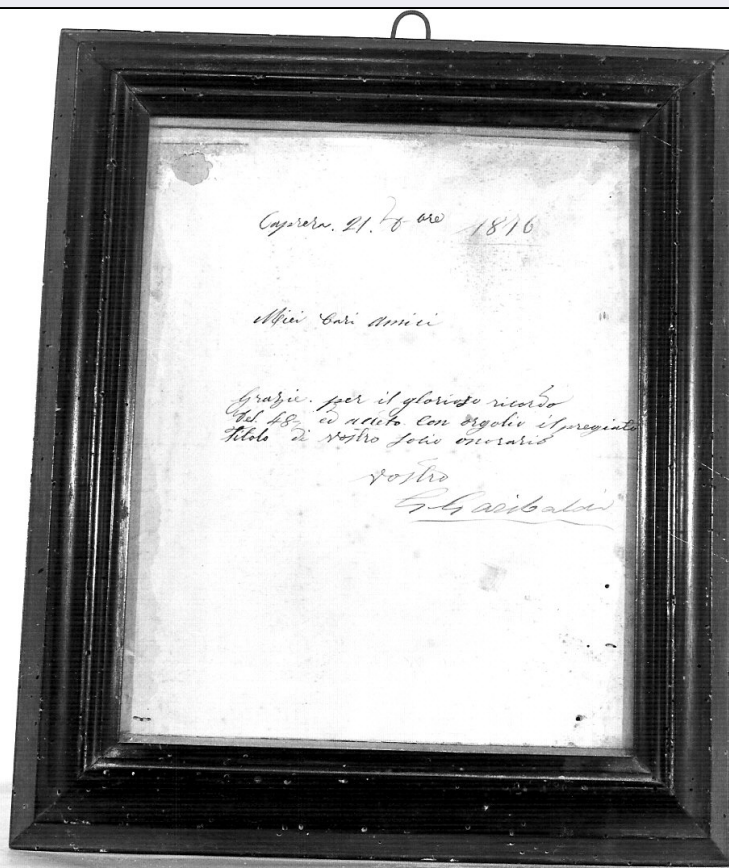 Caprera. 21. 1876
Miei Cari Amici
Grazie. per il glorioso ricordo
del 48, ed accetto. Con orgolio il pregiato
titolo di vostro socio onorario
vostro
G Garibaldi